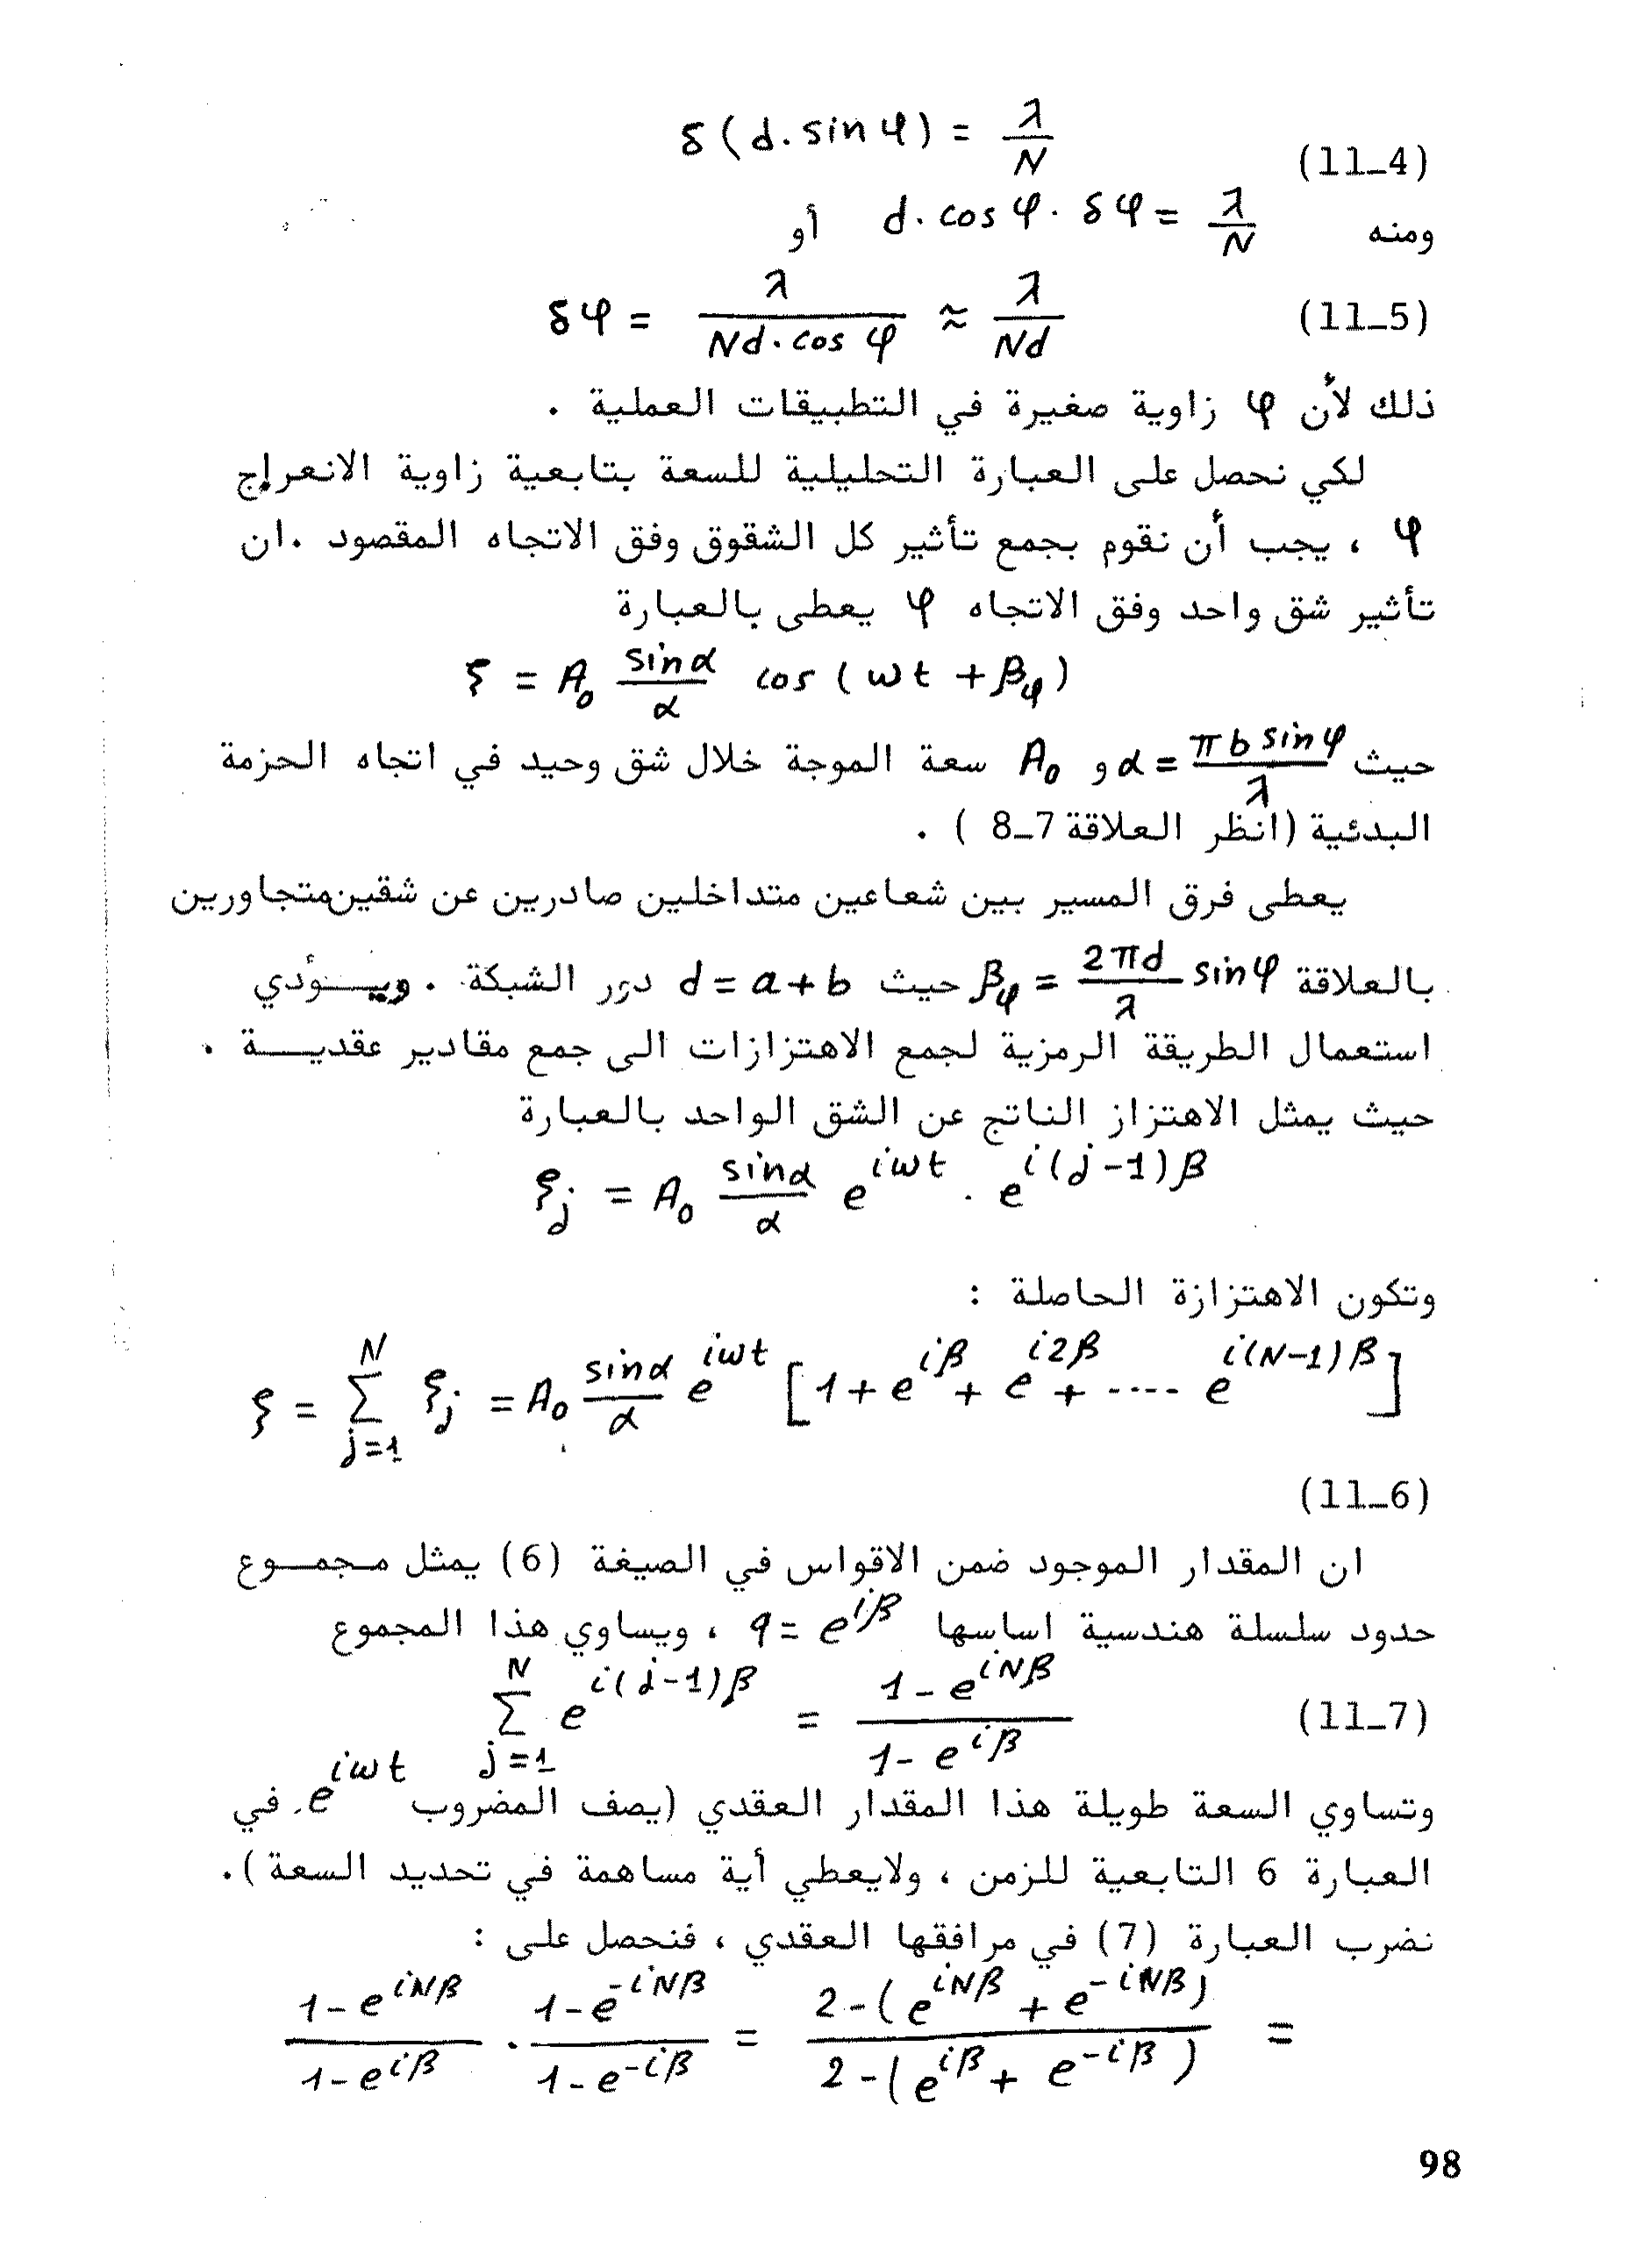 δ(d.sin φ) = λ/N (11_4)
ومنه d.cos φ. δφ = λ/N أو
δφ = λ/(Nd.cos φ) ≈ λ/(Nd) (11_5)
ذلك لأن φ زاوية صغيرة في التطبيقات العملية .
لكي نحصل على العبارة التحليلية للسعة بتابعية زاوية الانعراج
φ ، يجب أن نقوم بجمع تأثير كل الشقوق وفق الاتجاه المقصود .ان
تأثير شق واحد وفق الاتجاه φ يعطى بالعبارة
ξ = A₀ (sinα/α) cos (ωt + β_φ)
حيث α = (π b sinφ)/λ و A₀ سعة الموجة خلال شق وحيد في اتجاه الحزمة
البدئية (انظر العلاقة 7_8 ) .
يعطى فرق المسير بين شعاعين متداخلين صادرين عن شقين متجاورين
بالعلاقة β_φ = (2πd/λ) sinφ حيث d = a+b دور الشبكة . ويــؤدي
استعمال الطريقة الرمزية لجمع الاهتزازات الى جمع مقادير عقديــة .
حيث يمثل الاهتزاز الناتج عن الشق الواحد بالعبارة
ξ_j = A₀ (sinα/α) e^{iωt} . e^{i(j-1)β}
وتكون الاهتزازة الحاصلة :
ξ = Σ_{j=1}^{N} ξ_j = A₀ (sinα/α) e^{iωt} [1 + e^{iβ} + e^{i2β} + ---- e^{i(N-1)β}]
(11_6)
ان المقدار الموجود ضمن الاقواس في الصيغة (6) يمثل مـجمــوع
حدود سلسلة هندسية اساسها q = e^{iβ} ، ويساوي هذا المجموع
Σ_{j=1}^{N} e^{i(j-1)β} = (1 - e^{iNβ})/(1 - e^{iβ}) (11_7)
وتساوي السعة طويلة هذا المقدار العقدي (يصف المضروب e^{iωt} في
العبارة 6 التابعية للزمن ، ولايعطي أية مساهمة في تحديد السعة ).
نضرب العبارة (7) في مرافقها العقدي ، فنحصل على :
(1 - e^{iNβ})/(1 - e^{iβ}) . (1 - e^{-iNβ})/(1 - e^{-iβ}) = (2 - (e^{iNβ} + e^{-iNβ}))/(2 - (e^{iβ} + e^{-iβ})) =
98